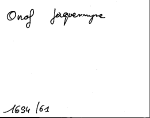 Onof Jaquemyns
1694/61